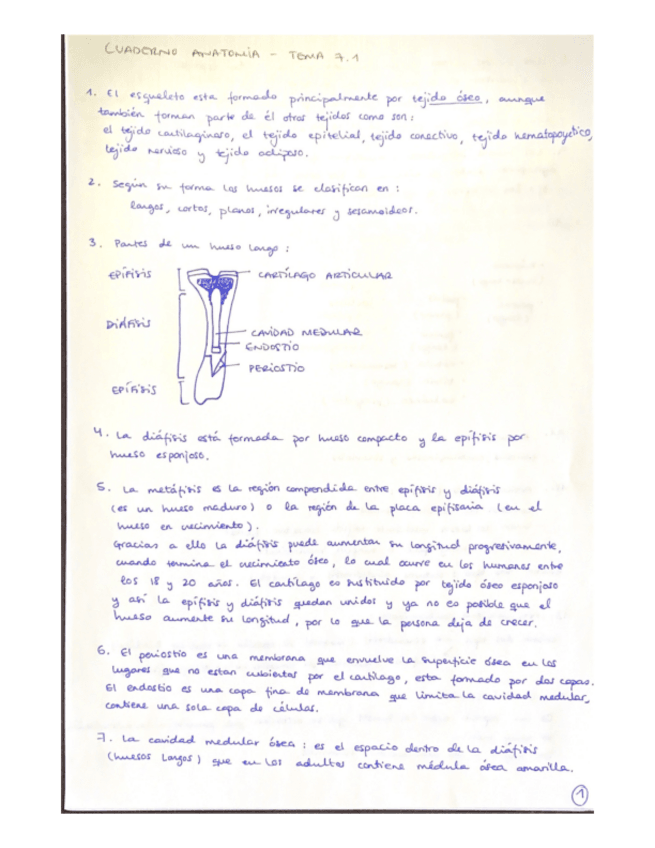 CUADERNO ANATOMÍA - TEMA 7.1
1. El esqueleto esta formado principalmente por tejido óseo, aunque
también forman parte de él otros tejidos como son:
el tejido cartilaginoso, el tejido epitelial, tejido conectivo, tejido hematopoyético,
tejido nervioso y tejido adiposo.
2. Según su forma los huesos se clasifican en:
largos, cortos, planos, irregulares y sesamoideos.
3. Partes de un hueso largo:
EPÍFISIS
CARTÍLAGO ARTICULAR
DIÁFISIS
CAVIDAD MEDULAR
ENDOSTIO
PERIOSTIO
EPÍFISIS
4. La diáfisis está formada por hueso compacto y la epífisis por
hueso esponjoso.
5. La metáfisis es la región comprendida entre epífisis y diáfisis
(es un hueso maduro) o la región de la placa epifisaria (en el
hueso en crecimiento).
Gracias a ello la diáfisis puede aumentar su longitud progresivamente,
cuando termina el crecimiento óseo, lo cual ocurre en los humanos entre
los 18 y 20 años. El cartílago es sustituido por tejido óseo esponjoso
y así la epífisis y diáfisis quedan unidos y ya no es posible que el
hueso aumente su longitud, por lo que la persona deja de crecer.
6. El periostio es una membrana que envuelve la superficie ósea en los
lugares que no estan cubiertos por el cartílago, esta formado por dos capas.
El endostio es una capa fina de membrana que limita la cavidad medular,
contiene una sola capa de células.
7. La cavidad medular ósea: es el espacio dentro de la diáfisis
(huesos largos) que en los adultos contiene médula ósea amarilla.
1